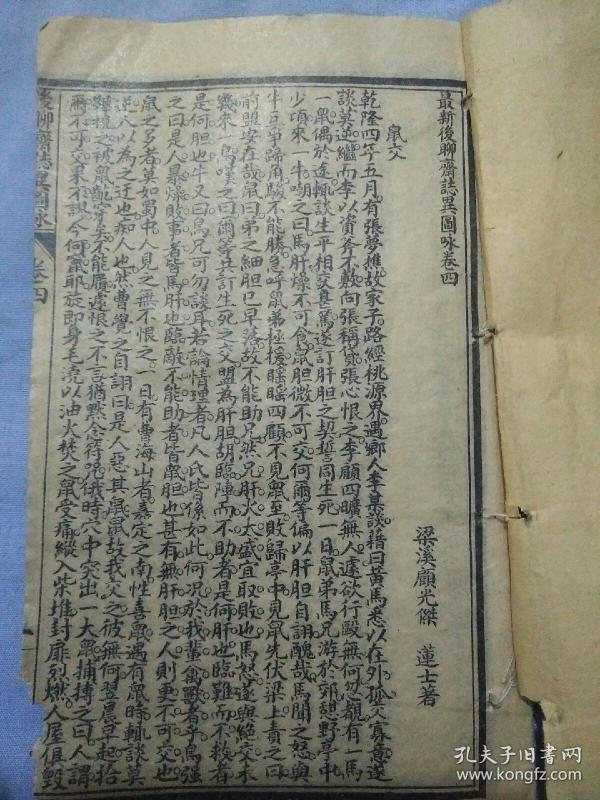 最新後聊齋誌異圖咏卷四
梁溪顧光傑 蓮士著
鼠交
乾隆四年五月有張夢樵故家子路經桃源界遇鄉人李某談藉曰黃馬悉以在外孤交寡意遂
談莫逆繼而李以資斧不敷向張稱貸張心恨之李顧四曠無人遽欲行毆無何忽覩有一馬
一鼠偶於途輒談生平相交甚篤遂訂肝胆之契誓同生死一日鼠弟馬兄游於郊憩野亭中
少頃來一牛嘲之曰馬肝燥不可食鼠胆微不可交何爾等偏以肝胆自詡醜哉馬聞之怒與
牛互爭蹄角駭不能勝急呼鼠弟拯援睜睜四顧不見鼠至敗歸亭中見鼠先伏梁上責之曰
前盟安在哉鼠曰弟之細胆已早落故不能助兄然兄肝火太盛宜取敗也馬怒遂與絕交未
幾來一馬嘆之曰爾等共訂生死之交盟為肝胆胡臨陣而不助者是何肝也臨難而不救者
是何胆也牛又曰馬兄可勿談耳若論情理者凡人民皆係如此何況於我輩禽獸者乎馬強
之曰是人暴燥敗事者皆馬肝也臨敵不能助者皆鼠胆也甚有無肝胆之人則更不可交也
鼠之多者莫如蜀中人見之無不恨之一日有曹海山者嘉定之南性喜鼠遇有鼠時輒談莫
逆人以為之迂也痴人也然曹覺之自詡曰是人惡其鼠鼠故我交之彼無何翌晨早起拾
鞋視之被鼠齕穿矣不能屬遽恨之不言猶默念符咒俄時穴中突出一大鼠捕搏之曰人謂
爾不可交果不誤今何竄耶旋即身毛澆以油火焚之鼠受痛縱入柴堆封扉烈燃人屋俱毀
後聊齋誌異圖咏 卷四
孔夫子旧书网
www.kongfz.com